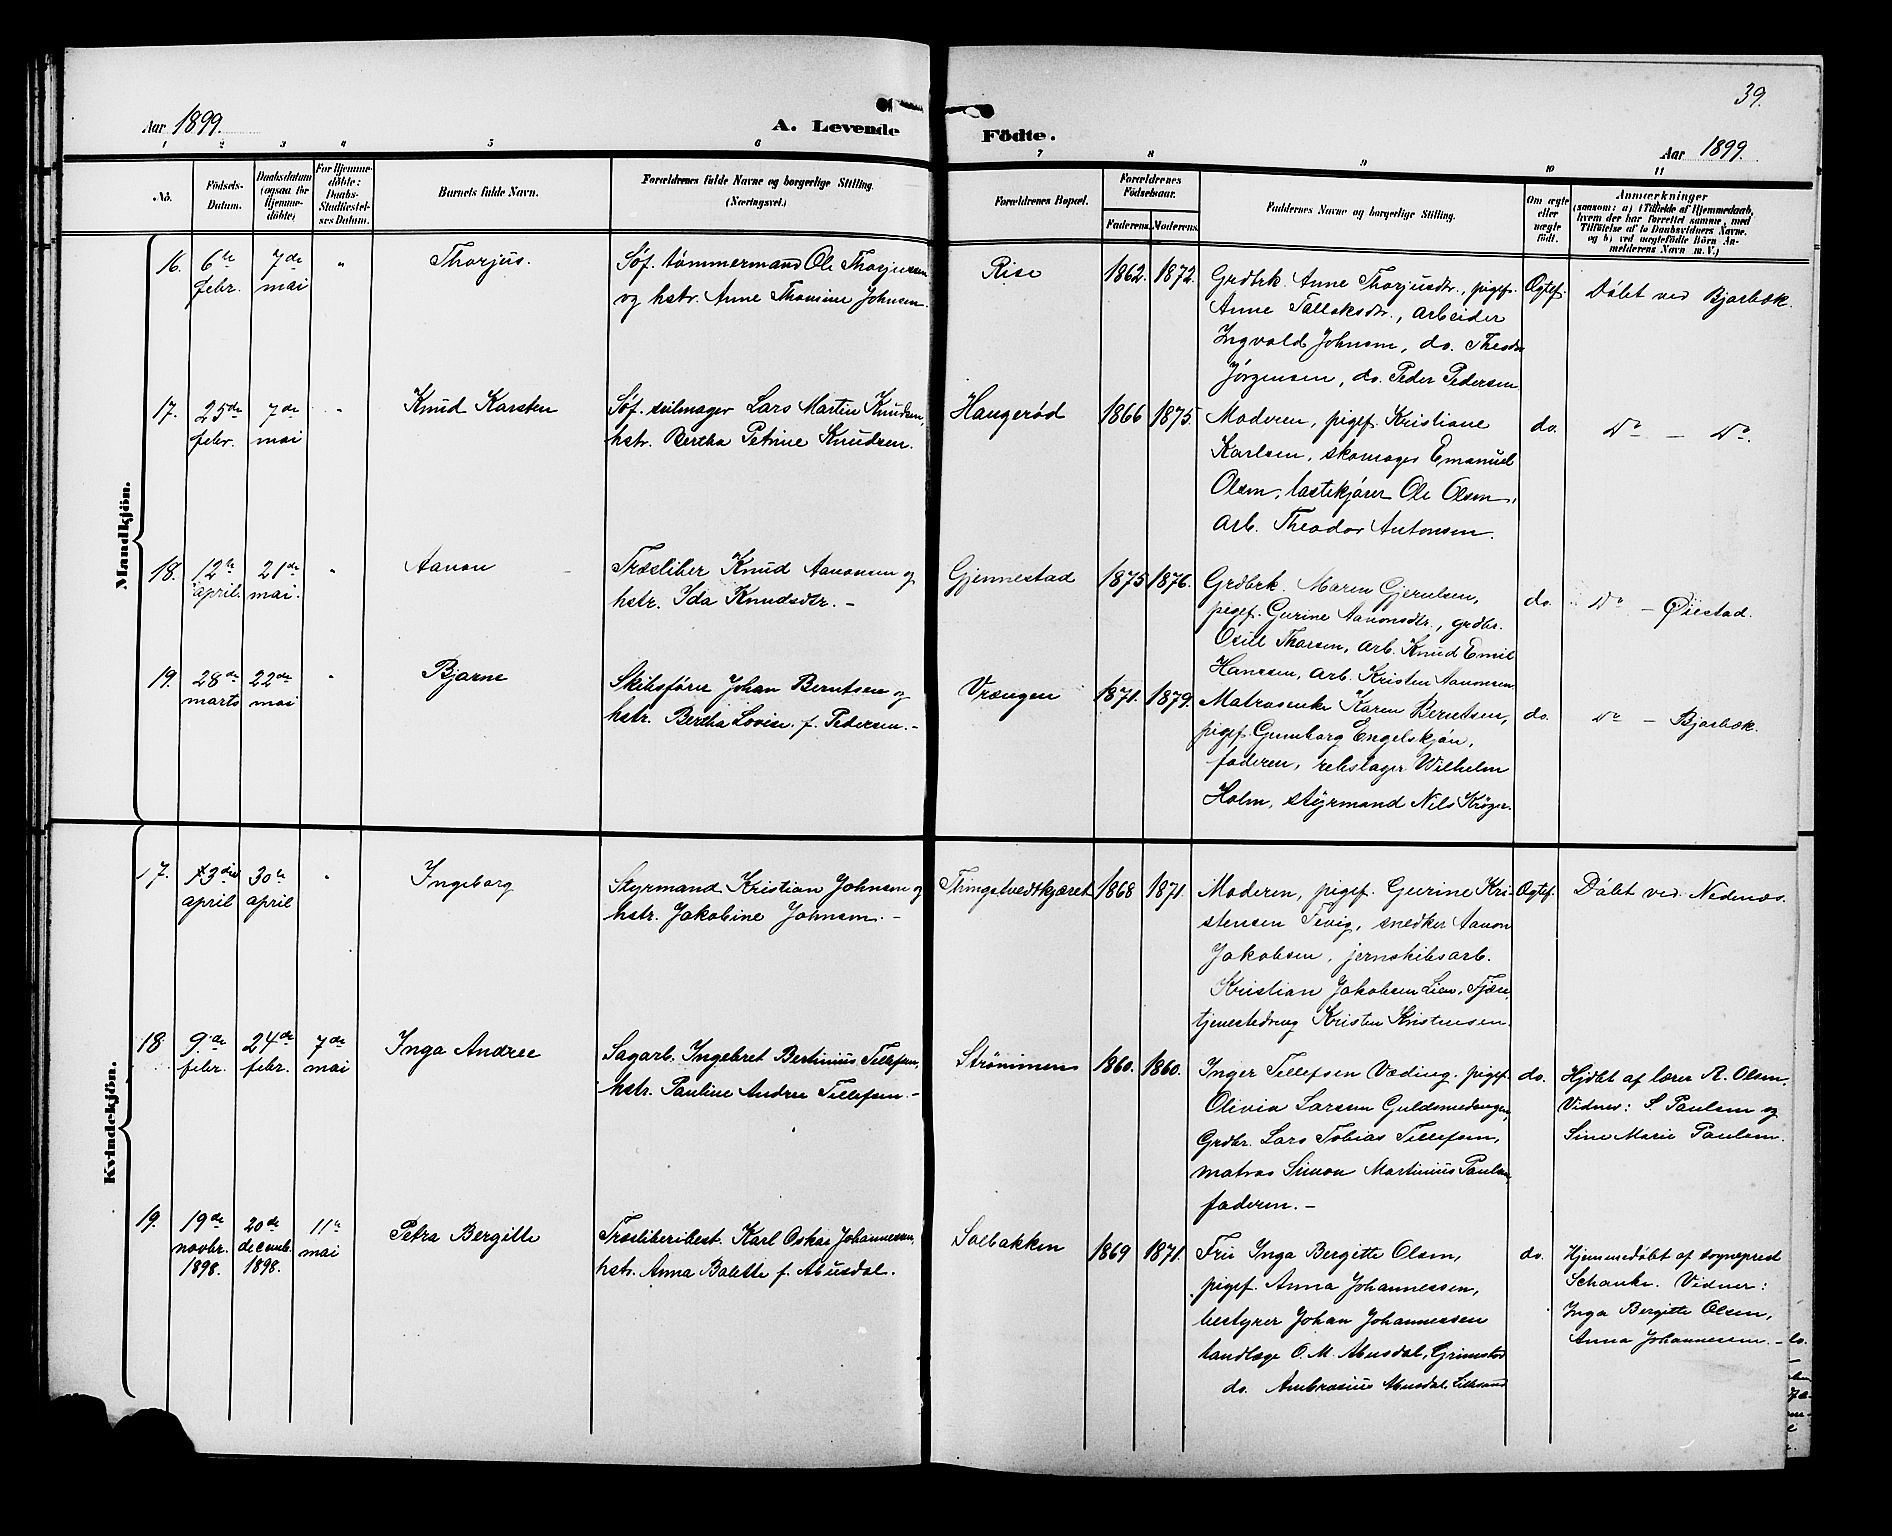 39.
Aar 1899.
A. Levende
Födte.
Aar 1899.
1 2 3 4 5 6 7 8 9 10 11
No.
Födsels-
Datum.
Daabsdatum
(ogsaa for
Hjemme-
döbte)
For Hjemme-
döbte:
Daabs-
Stadfæstel-
ses Datum.
Barnets fulde Navn.
Forældrenes fulde Navne og borgerlige Stilling.
(Næringsvei.)
Forældrenes Bopæl.
Forældrenes
Födselsaar.
Faderens. Moderens.
Faddernes Navne og borgerlige Stilling.
Om ægte
eller
uægte
født.
Anmærkninger
(saasom: a) i Tilfælde af Hjemmedaab,
hvem der har forrettet samme, med
Tilföielse af to Daabsvidners Navne.
og b) ved uægtefödte Börn An-
melderens Navn m. V.)
Mandkjön.
16. 6te febr. 7de mai " Thorjus.
Søf. tømmermand Ole Thorjussen
og hstr. Anne Thomine Johnsen.
Rise 1862. 1872.
Grdbrk. Anne Thorjusdtr., pigef.
Anne Tallaksdtr., arbeider
Ingvald Johnsen, do. Theodor
Jørgensen, do. Peder Pedersen
Ægtef. Døbt ved Bjorbæk.
17. 25de febr. 7de mai " Knud Karsten
Søf. seilmager Lars Martin Knudsen,
hstr. Bertha Petrine Knudsen.
Haugerød 1866 1875.
Moderen, pigef. Kristiane
Karlsen, skomager Emanuel
Olsen, lastekjører Ole Olsen,
arb. Theodor Antonsen.
do. Do — Do.
18. 12te april. 21de mai. " Aanon
Træsliber Knud Aanonsen og
hstr. Ida Knudsdtr. —
Gjennestad 1875 1876.
Grdbrk. Maren Gjerulsen,
pigef. Gurine Aanonsdtr., grdbr.
Osuld Thorsen, arb. Knud Emil
Hanssen, arb. Kristen Aanonsen
do. Do — Øiestad.
19. 28de marts 22de mai " Bjarne
Skibsfører Johan Berntsen og
hstr. Bertha Lovise f. Pedersen. —
Vrængen 1871. 1879.
Matrosenke Karen Berntsen,
pigef. Gunborg Engelskjøn,
faderen, rebslager Wilhelm
Holm, styrmand Nils Krøger.
do. Do — Bjorbæk.
Kvindekjön.
17. 13de april 30te april " Ingeborg
Styrmand Kristian Johnsen og
hstr. Jakobine Johnsen. —
Thingstvedtkjæret 1868 1871.
Moderen, pigef. Gurine Kri-
stensen Tevig, snedker Aanon
Jakobsen, jernskibsarb.
Kristian Jakobsen Lien, Fjære,
tjenestedreng Kristen Kristensen.
Ægtef. Døbt ved Nedenæs.
18 9de febr. 24de febr. 7de mai Inga Andree
Sagarb. Ingebret Bertinius Tellefsen,
hstr. Pauline Andree Tellefsen. —
Strømmen 1860. 1860.
Inger Tellefsen Væding, pigef.
Olivia Larsen Guldsmedengen,
Grdbr. Lars Tobias Tellefsen,
matros Simon Martinius Paulsen
faderen. —
do. Hjdøbt af lærer A. Olsen.
Vidner: S. Paulsen og
Sine Marie Paulsen.
19. 19de novbr. 1898. 20de decemb. 1898. 11te mai Petra Bergitte
Træsliberibest. Karl Oskar Johannessen,
hstr. Anna Balette f. Abusdal.
Solbakken 1869 1871.
Frü Inga Bergitte Olsen,
pigef. Anna Johannessen,
bestyrer Johan Johannessen
tandlæge O. M. Abusdal, Grimstad
do. Ambrosius Abusdal, Lillesand
do. Hjemmedøbt af sogneprest
Schanke. Vidner:
Inga Bergitte Olsen,
Anna Johannessen. —